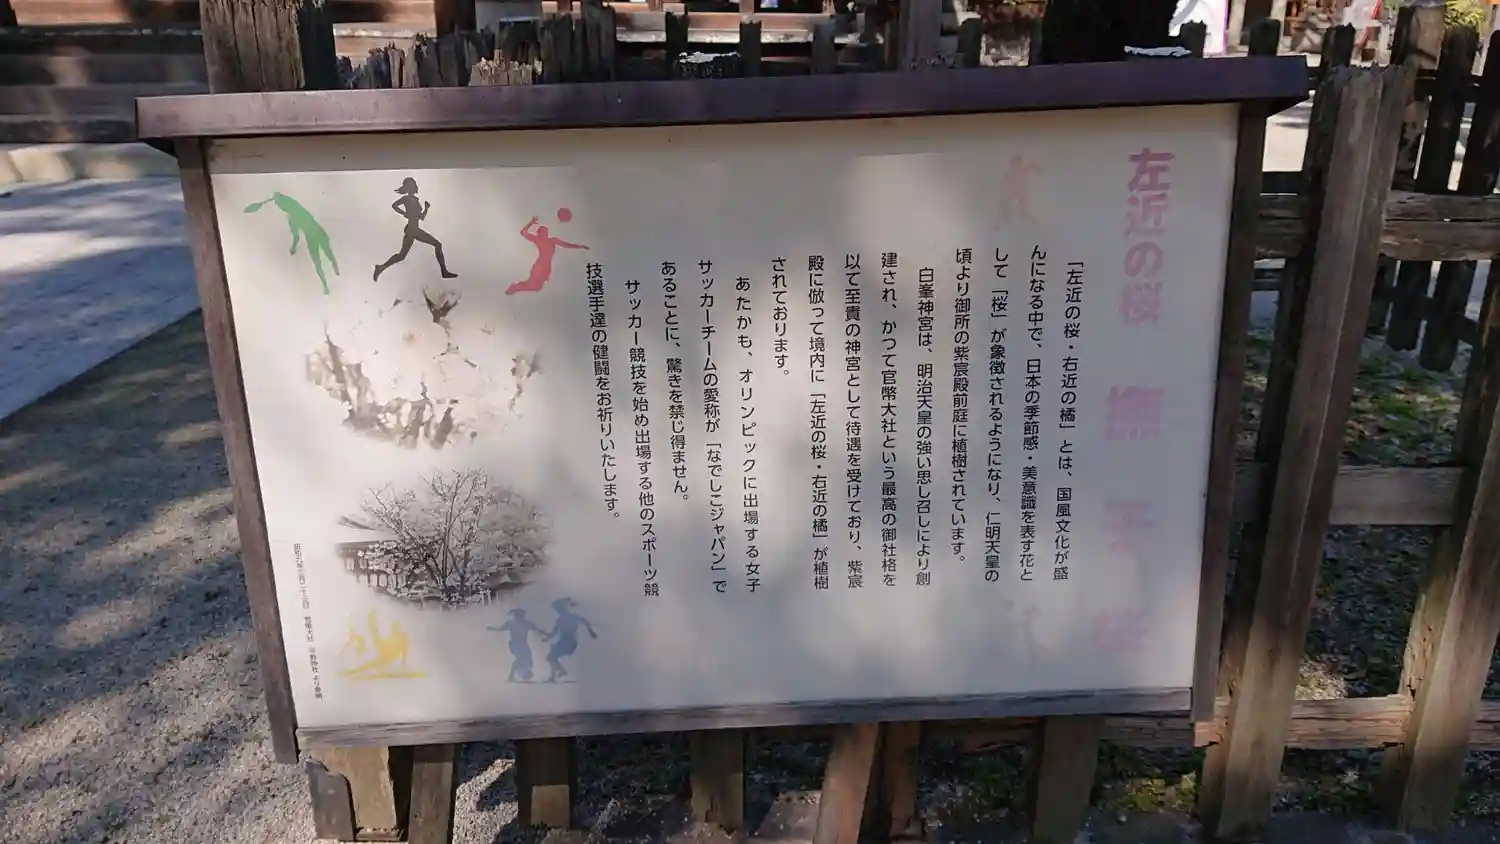 左近の桜 撫子桜
「左近の桜・右近の橘」とは、国風文化が盛
んになる中で、日本の季節感・美意識を表す花と
して「桜」が象徴されるようになり、仁明天皇の
頃より御所の紫宸殿前庭に植樹されています。
白峯神宮は、明治天皇の強い思し召しにより創
建され、かつて官幣大社という最高の御社格を
以て至貴の神宮として待遇を受けており、紫宸
殿に倣って境内に「左近の桜・右近の橘」が植樹
されております。
あたかも、オリンピックに出場する女子
サッカーチームの愛称が「なでしこジャパン」で
あることに、驚きを禁じ得ません。
サッカー競技を始め出場する他のスポーツ競
技選手達の健闘をお祈りいたします。